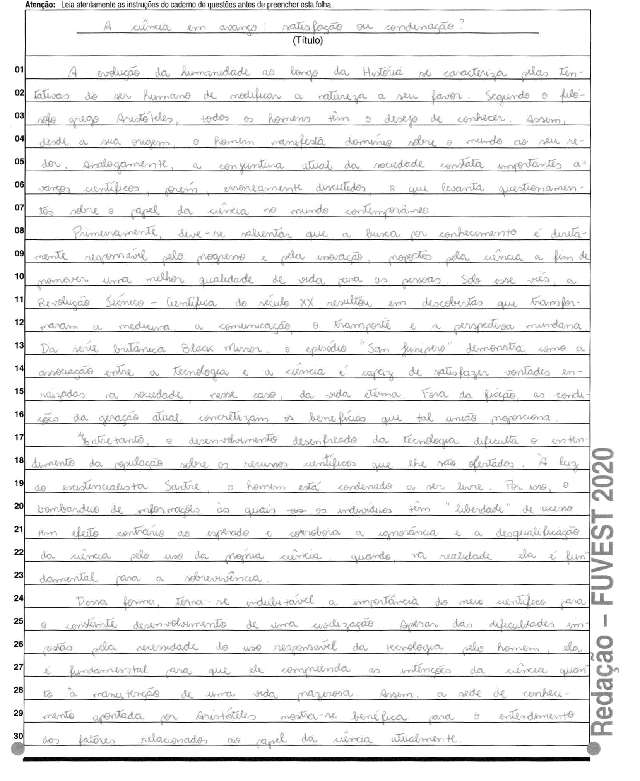 Atenção: Leia atentamente as instruções do caderno de questões antes de preencher esta folha.
A ciência em avanço: satisfação ou condenação?
(Título)
01 A evolução da humanidade ao longo da História se caracteriza pelas ten-
02 tativas do ser humano de modificar a natureza a seu favor. Segundo o filó-
03 sofo grego Aristóteles, todos os homens têm o desejo de conhecer. Assim,
04 desde a sua origem, o homem manifesta domínio sobre o mundo ao seu re-
05 dor. Analogamente, a conjuntura atual da sociedade constata importantes a-
06 vanços científicos, porém, erroneamente discutidos, o que levanta questionamen-
07 tos sobre o papel da ciência no mundo contemporâneo.
08 Primeiramente, deve-se salientar que a busca por conhecimento é direta-
09 mente responsável pelo progresso e pela inovação, propostos pela ciência a fim de
10 promover uma melhor qualidade de vida para as pessoas. Sob esse viés, a
11 Revolução Técnico-Científica do século XX resultou em descobertas que transfor-
12 maram a medicina, a comunicação, o transporte e a perspectiva mundana.
13 Da série britânica Black Mirror, o episódio "San Junipero" demonstra como a
14 associação entre a tecnologia e a ciência é capaz de satisfazer vontades en-
15 raizadas na sociedade, nesse caso, da vida eterna. Fora da ficção, as condi-
16 ções da geração atual concretizam os benefícios que tal união proporciona.
17 Entretanto, o desenvolvimento desenfreado da tecnologia dificulta o enten-
18 dimento da população sobre os recursos científicos que lhe são ofertados. À luz
19 do existencialista Sartre, o homem está condenado a ser livre. Por isso, o
20 bombardeio de informações às quais os indivíduos têm "liberdade" de acesso
21 tem efeito contrário ao esperado e corrobora a ignorância e a desqualificação
22 da ciência pelo uso da própria ciência quando, na realidade ela é fun-
23 damental para a sobrevivência.
24 Dessa forma, torna-se indubitável a importância do meio científico para
25 o constante desenvolvimento de uma civilização. Apesar das dificuldades im-
26 postas pela necessidade do uso responsável da tecnologia pelo homem, ela
27 é fundamental para que ele compreenda as intenções da ciência quan-
28 to à manutenção de uma vida prazerosa. Assim, a sede de conheci-
29 mento apontada por Aristóteles mostra-se benéfica para o entendimento
30 dos fatores relacionados ao papel da ciência atualmente.
Redação – FUVEST 2020